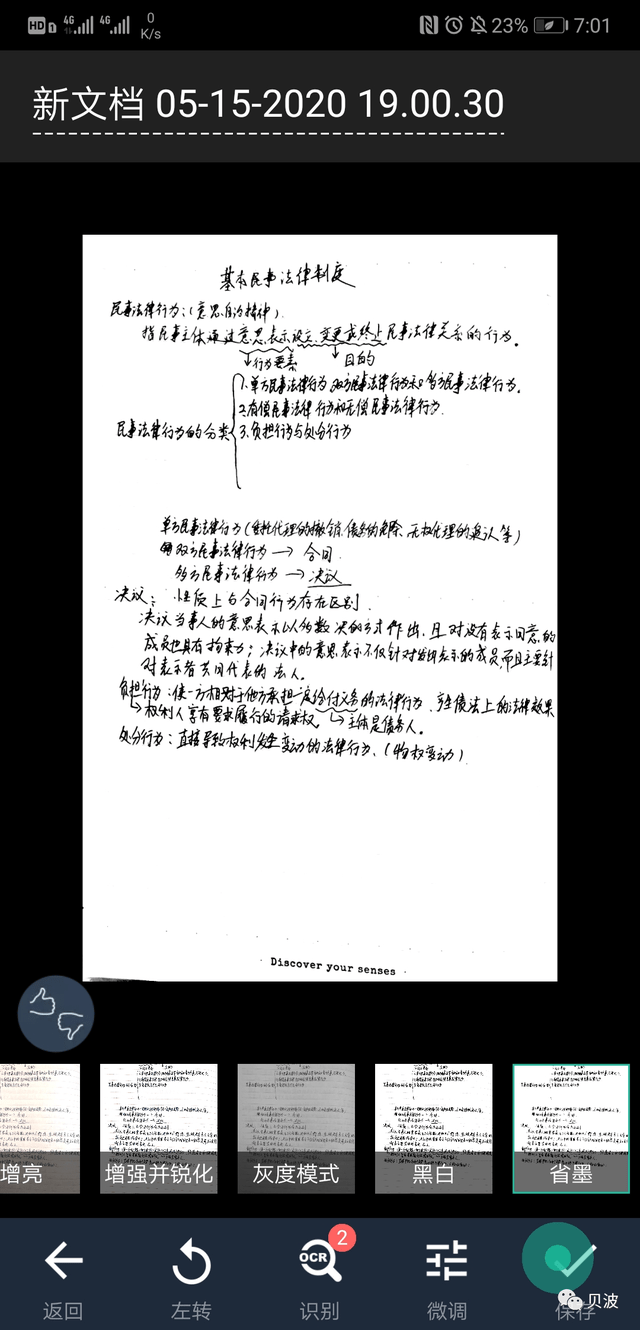 HD 4G 4G 0 K/s 23% 7:01
新文档 05-15-2020 19.00.30
基本民事法律制度
民事法律行为:(意思自治精神).
指民事主体通过意思表示设立、变更或终止民事法律关系的行为。
↓行为要素 ↓目的
1.单方民事法律行为 双方民事法律行为和多方民事法律行为.
2.有偿民事法律行为和无偿民事法律行为.
民事法律行为的分类 3.负担行为与处分行为
单方民事法律行为(委托代理的撤销、债务的免除、无权代理的追认等)
双方民事法律行为 → 合同.
多方民事法律行为 → 决议
决议: 性质上与合同行为存在区别.
决议当事人的意思表示以多数决的方式作出,且对没有表示同意的
成员也具有拘束力;决议中的意思表示不仅针对发出表示的成员,而且主要针
对表示者共同代表的法人.
负担行为:使一方相对于他方承担一定给付义务的法律行为.产生债法上的法律效果
↳权利人享有要求履行的请求权. ↳主体是债务人.
处分行为:直接导致权利发生变动的法律行为、(物权变动)
Discover your senses
增亮 增强并锐化 灰度模式 黑白 省墨
OCR 2
返回 左转 识别 微调 保存
贝波